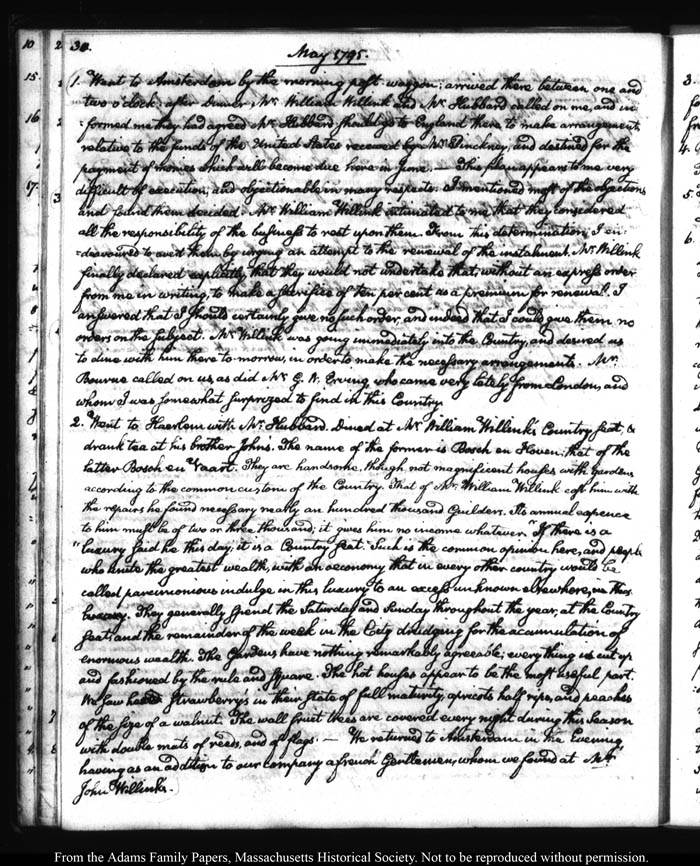 30.
May 1795.
1. Went to Amsterdam by the morning post-waggon; arrived there between one and
two o'clock; after Dinner, Mr. William Willink and Mr. Hubbard called on me, and in-
formed me they had agreed Mr. Hubbard should go to England there to make arrangements
relative to the funds of the United States received by Mr. Pinckney, and destined for the
payment of monies which will become due here in June. — This plan appears to me very
difficult of execution, and objectionable in many respects. I mentioned most of the objections
and found them decided. Mr. William Willink intimated to me that they considered
all the responsibility of the business to rest upon them. From this determination, I en-
=deavoured to avert them by urging an attempt to the renewal of the instalment. Mr. Willink
finally declared explicitly that they would not undertake that, without an express order
from me in writing, to make a sacrifice of ten per cent as a premium for renewal. I
answered that I should certainly give no such order, and indeed that I could give them no
orders on the subject. Mr. Willink was going immediately into the Country, and desired us
to dine with him there to-morrow, in order to make the necessary arrangements. Mr.
Bourne called on us as did Mr. G. W. Erving, who came very lately from London, and
whom I was somewhat surprized to find in this Country.
2. Went to Haerlem with Mr. Hubbard. Dined at Mr. William Willink's Country seat, &
drank tea at his brother John's. The name of the former is Bosch en Hoven; that of the
latter Bosch en Vaart. They are handsome, though not magnificent houses with gardens
according to the common custom of the Country. That of Mr. William Willink cost him with
the repairs he found necessary nearly an hundred thousand Guilders. Its annual expence
to him must be of two or three thousand; it gives him no income whatever. "If there is a
"luxury said he this day, it is a Country seat." Such is the common opinion here, and people
who unite the greatest wealth, with an oeconomy that in every other country would be
called parcimonious indulge in this luxury to an excess unknown elsewhere, in this
luxury. They generally spend the Saturday and Sunday throughout the year, at the Country
seat, and the remainder of the week in the City drudging for the accumulation of
enormous wealth. The Gardens have nothing remarkably agreeable; every thing is cut up
and fashioned by the rule and square. The hot houses appear to be the most useful part.
We saw here Strawberry's in their state of full maturity, apricots half ripe, and peaches
of the size of a walnut. The wall fruit trees are covered every night during this season
with double mats of reeds, and of flags. — We returned to Amsterdam in the Evening,
having as an addition to our company a french Gentleman, whom we found at Mr.
John Willink's.
From the Adams Family Papers, Massachusetts Historical Society. Not to be reproduced without permission.